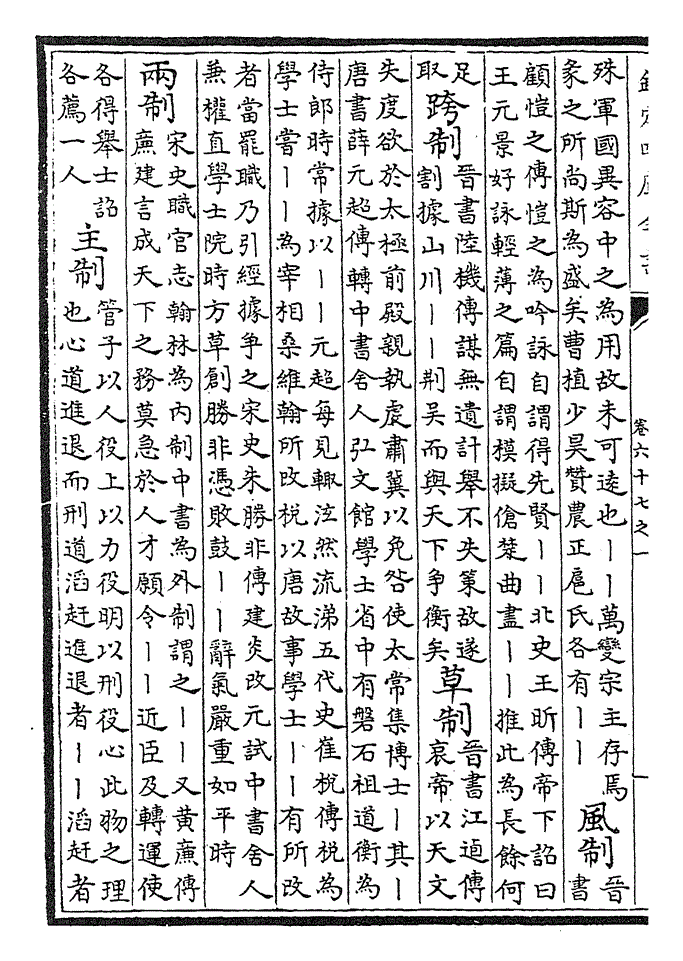 卷六十七之一
殊軍國異容中之為用故未可逺也丨丨萬變宗主存焉
象之所尚斯為盛矣曹植少昊贊農正扈氏各有丨丨
風制
晉
書
顧愷之傳愷之為吟詠自謂得先賢丨丨北史王昕傳帝下詔曰
王元景好詠輕薄之篇自謂模擬傖楚曲盡丨丨推此為長餘何
足
取
跨制
晉書陸機傳謀無遺計舉不失策故遂
割據山川丨丨荆吴而與天下争衡矣
草制
晉書江逌傳
哀帝以天文
失度欲於太極前殿親執䖍肅冀以免咎使太常集博士丨其丨
唐書薛元超傳轉中書舍人弘文館學士省中有磐石祖道衡為
侍郎時常據以丨丨元超每見輙泫然流涕五代史崔梲傳梲為
學士嘗丨丨為宰相桑維翰所改梲以唐故事學士丨丨有所改
者當罷職乃引經據争之宋史朱勝非傳建炎改元試中書舍人
兼權直學士院時方草創勝非憑敗鼓丨丨辭氣嚴重如平時
兩制
宋史職官志翰林為内制中書為外制謂之丨丨又黄㢘傳
㢘建言成天下之務莫急於人才願令丨丨近臣及轉運使
各得舉士詔
各薦一人
主制
管子以人役上以力役明以刑役心此物之理
也心道進退而刑道滔赶進退者丨丨滔赶者